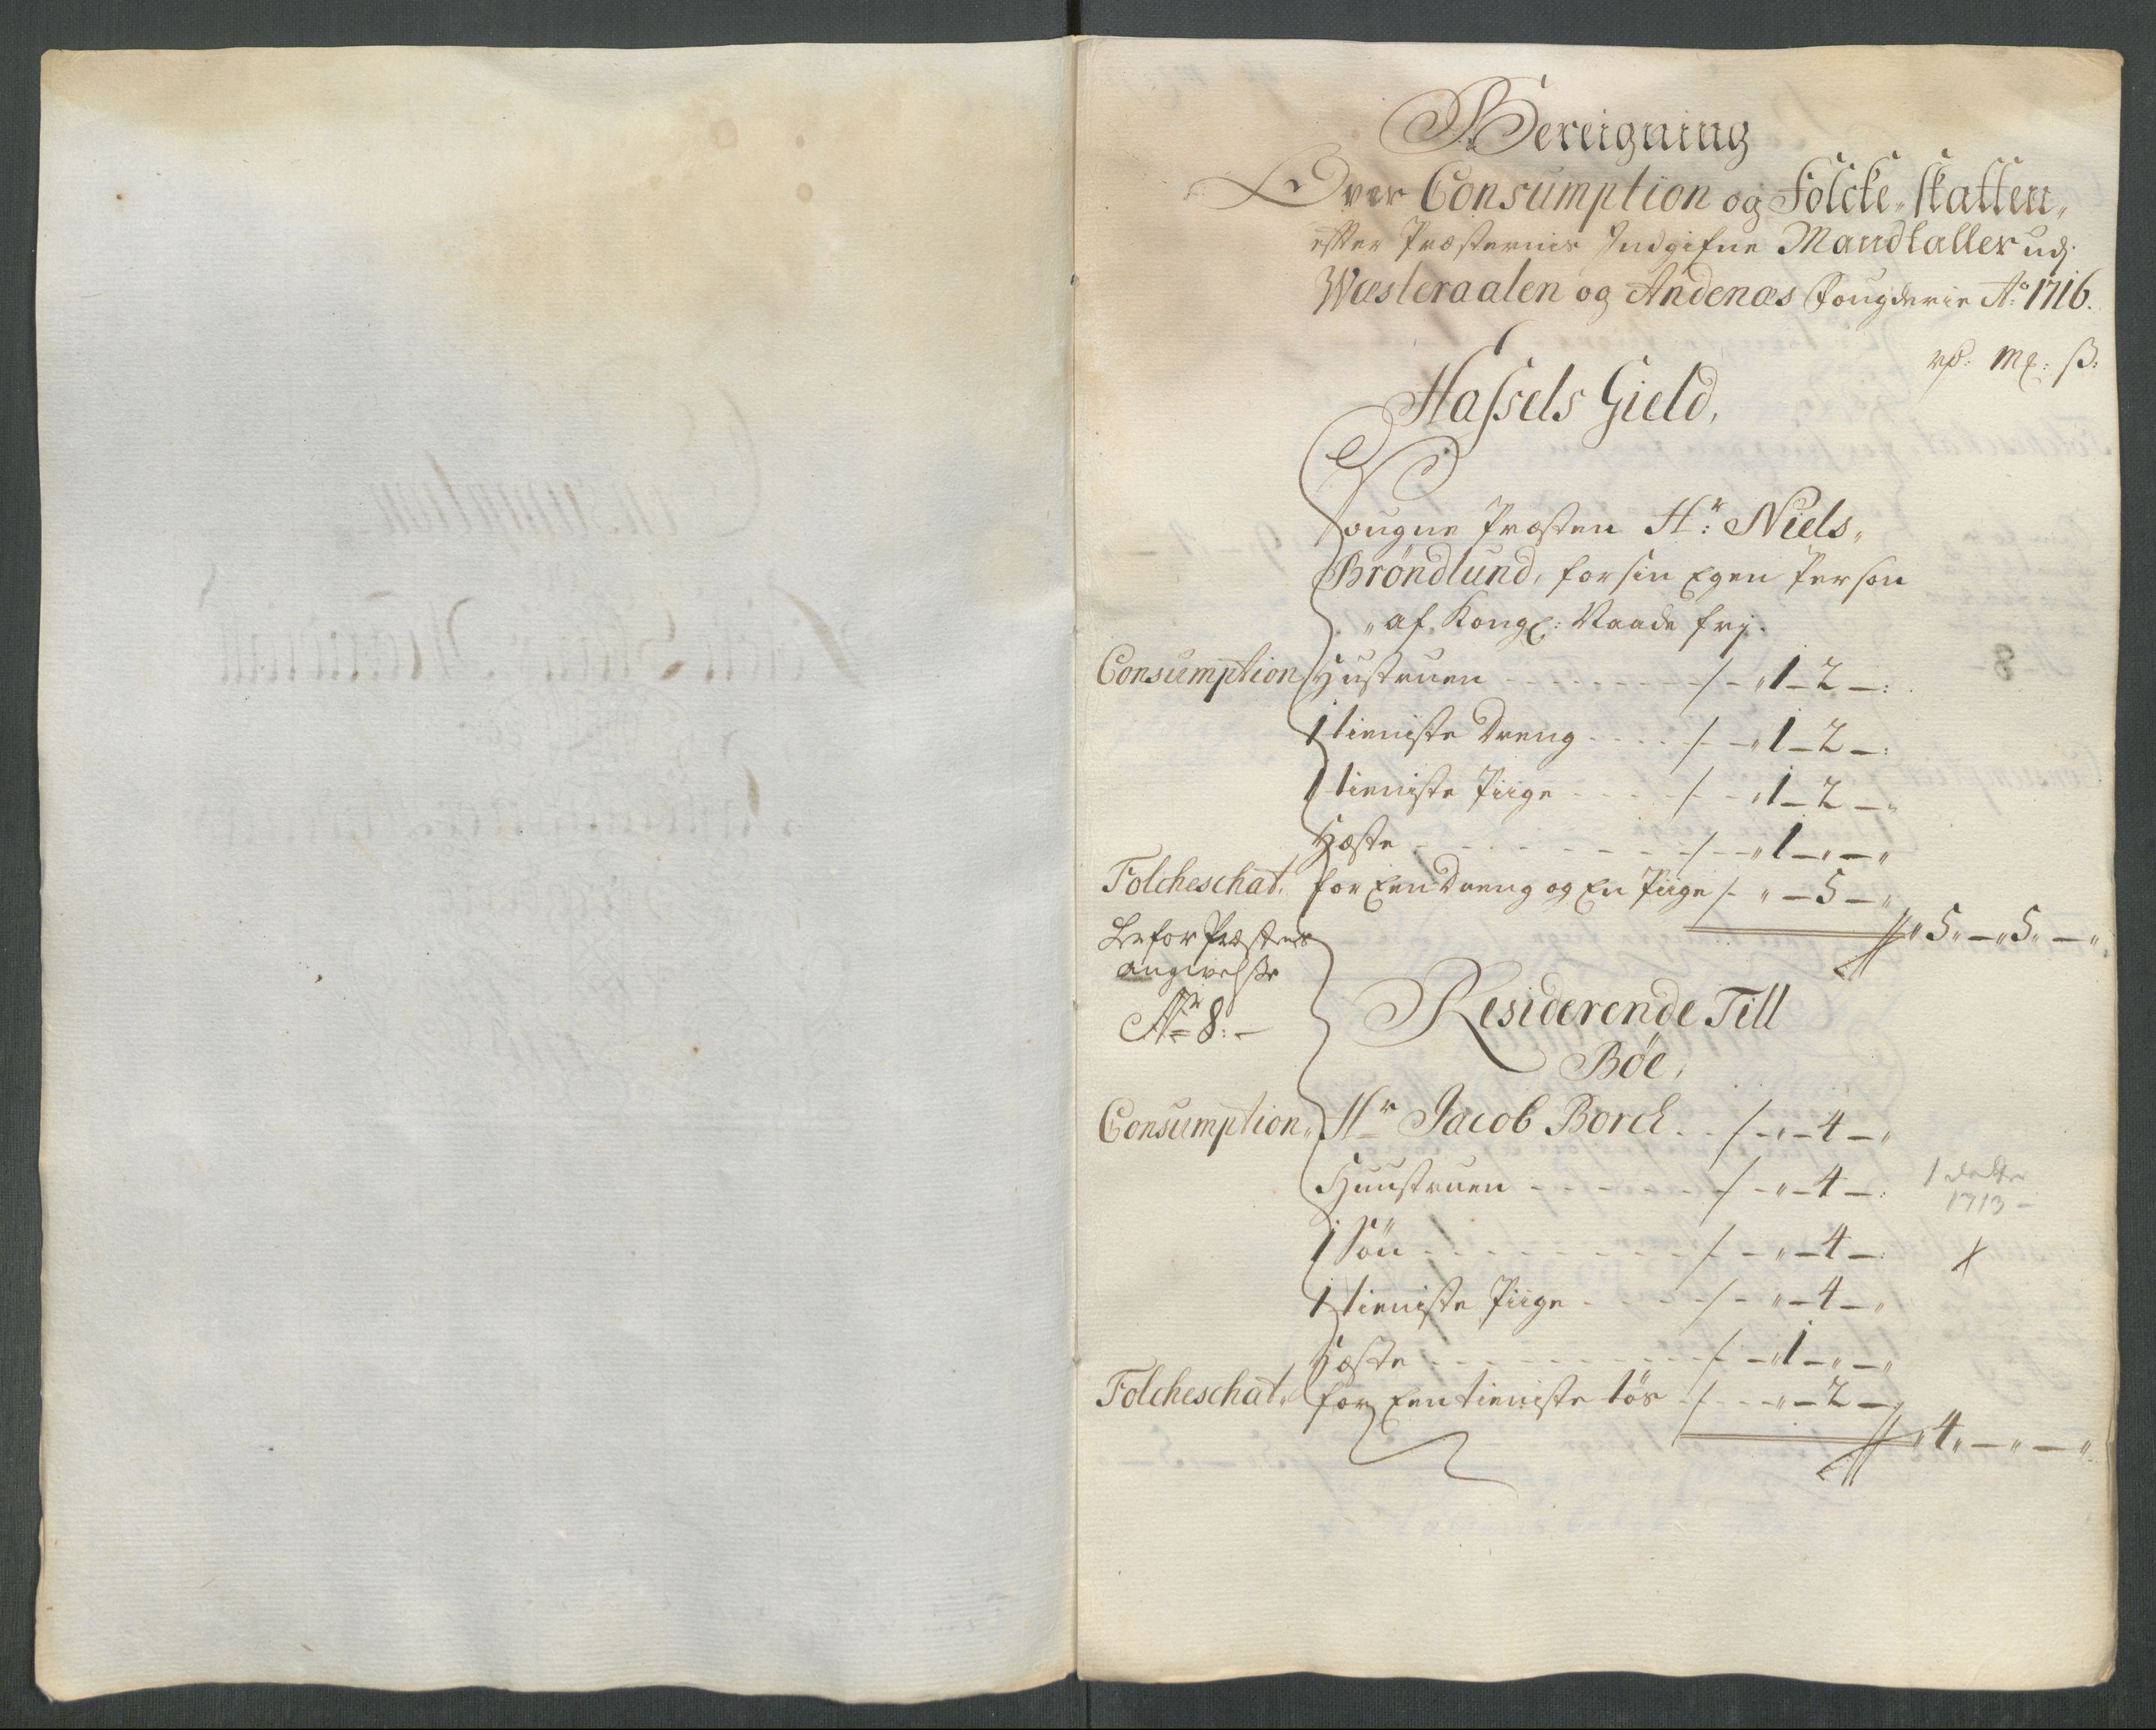 Bereigning
Over Consumption og Folcke-skatten,
effter Præsternis Indgifne Mandtaller udj
Wæsteraalen og Andenæs Fougderie Ao: 1716.
rd: mk: ß:
Hassels Gield,
Sougne Præsten Hr: Niels
Brøndlund, for sin Egen Person
af Kongl: Naade frj.
Consumption Hustruen - 1 - 2 -
1 tieniste Dreng - 1 - 2 -
1 tieniste Piige - 1 - 2 -
Hæste - 1 - -
Folcheschat. for Een Dreng og En Piige - 5 -
5 - 5 -
Præstens
angivelße
No 8:-
Residerende Till
Bøe,
Consumption Hr Jacob Borch - 4 -
Huustruen - 4 -
1713 -
1 Søn - 4 -
1 tieniste Piige - 4 -
Hæste - 1 - -
Folcheschat. for Een tieniste tøs - 2 -
4 - -